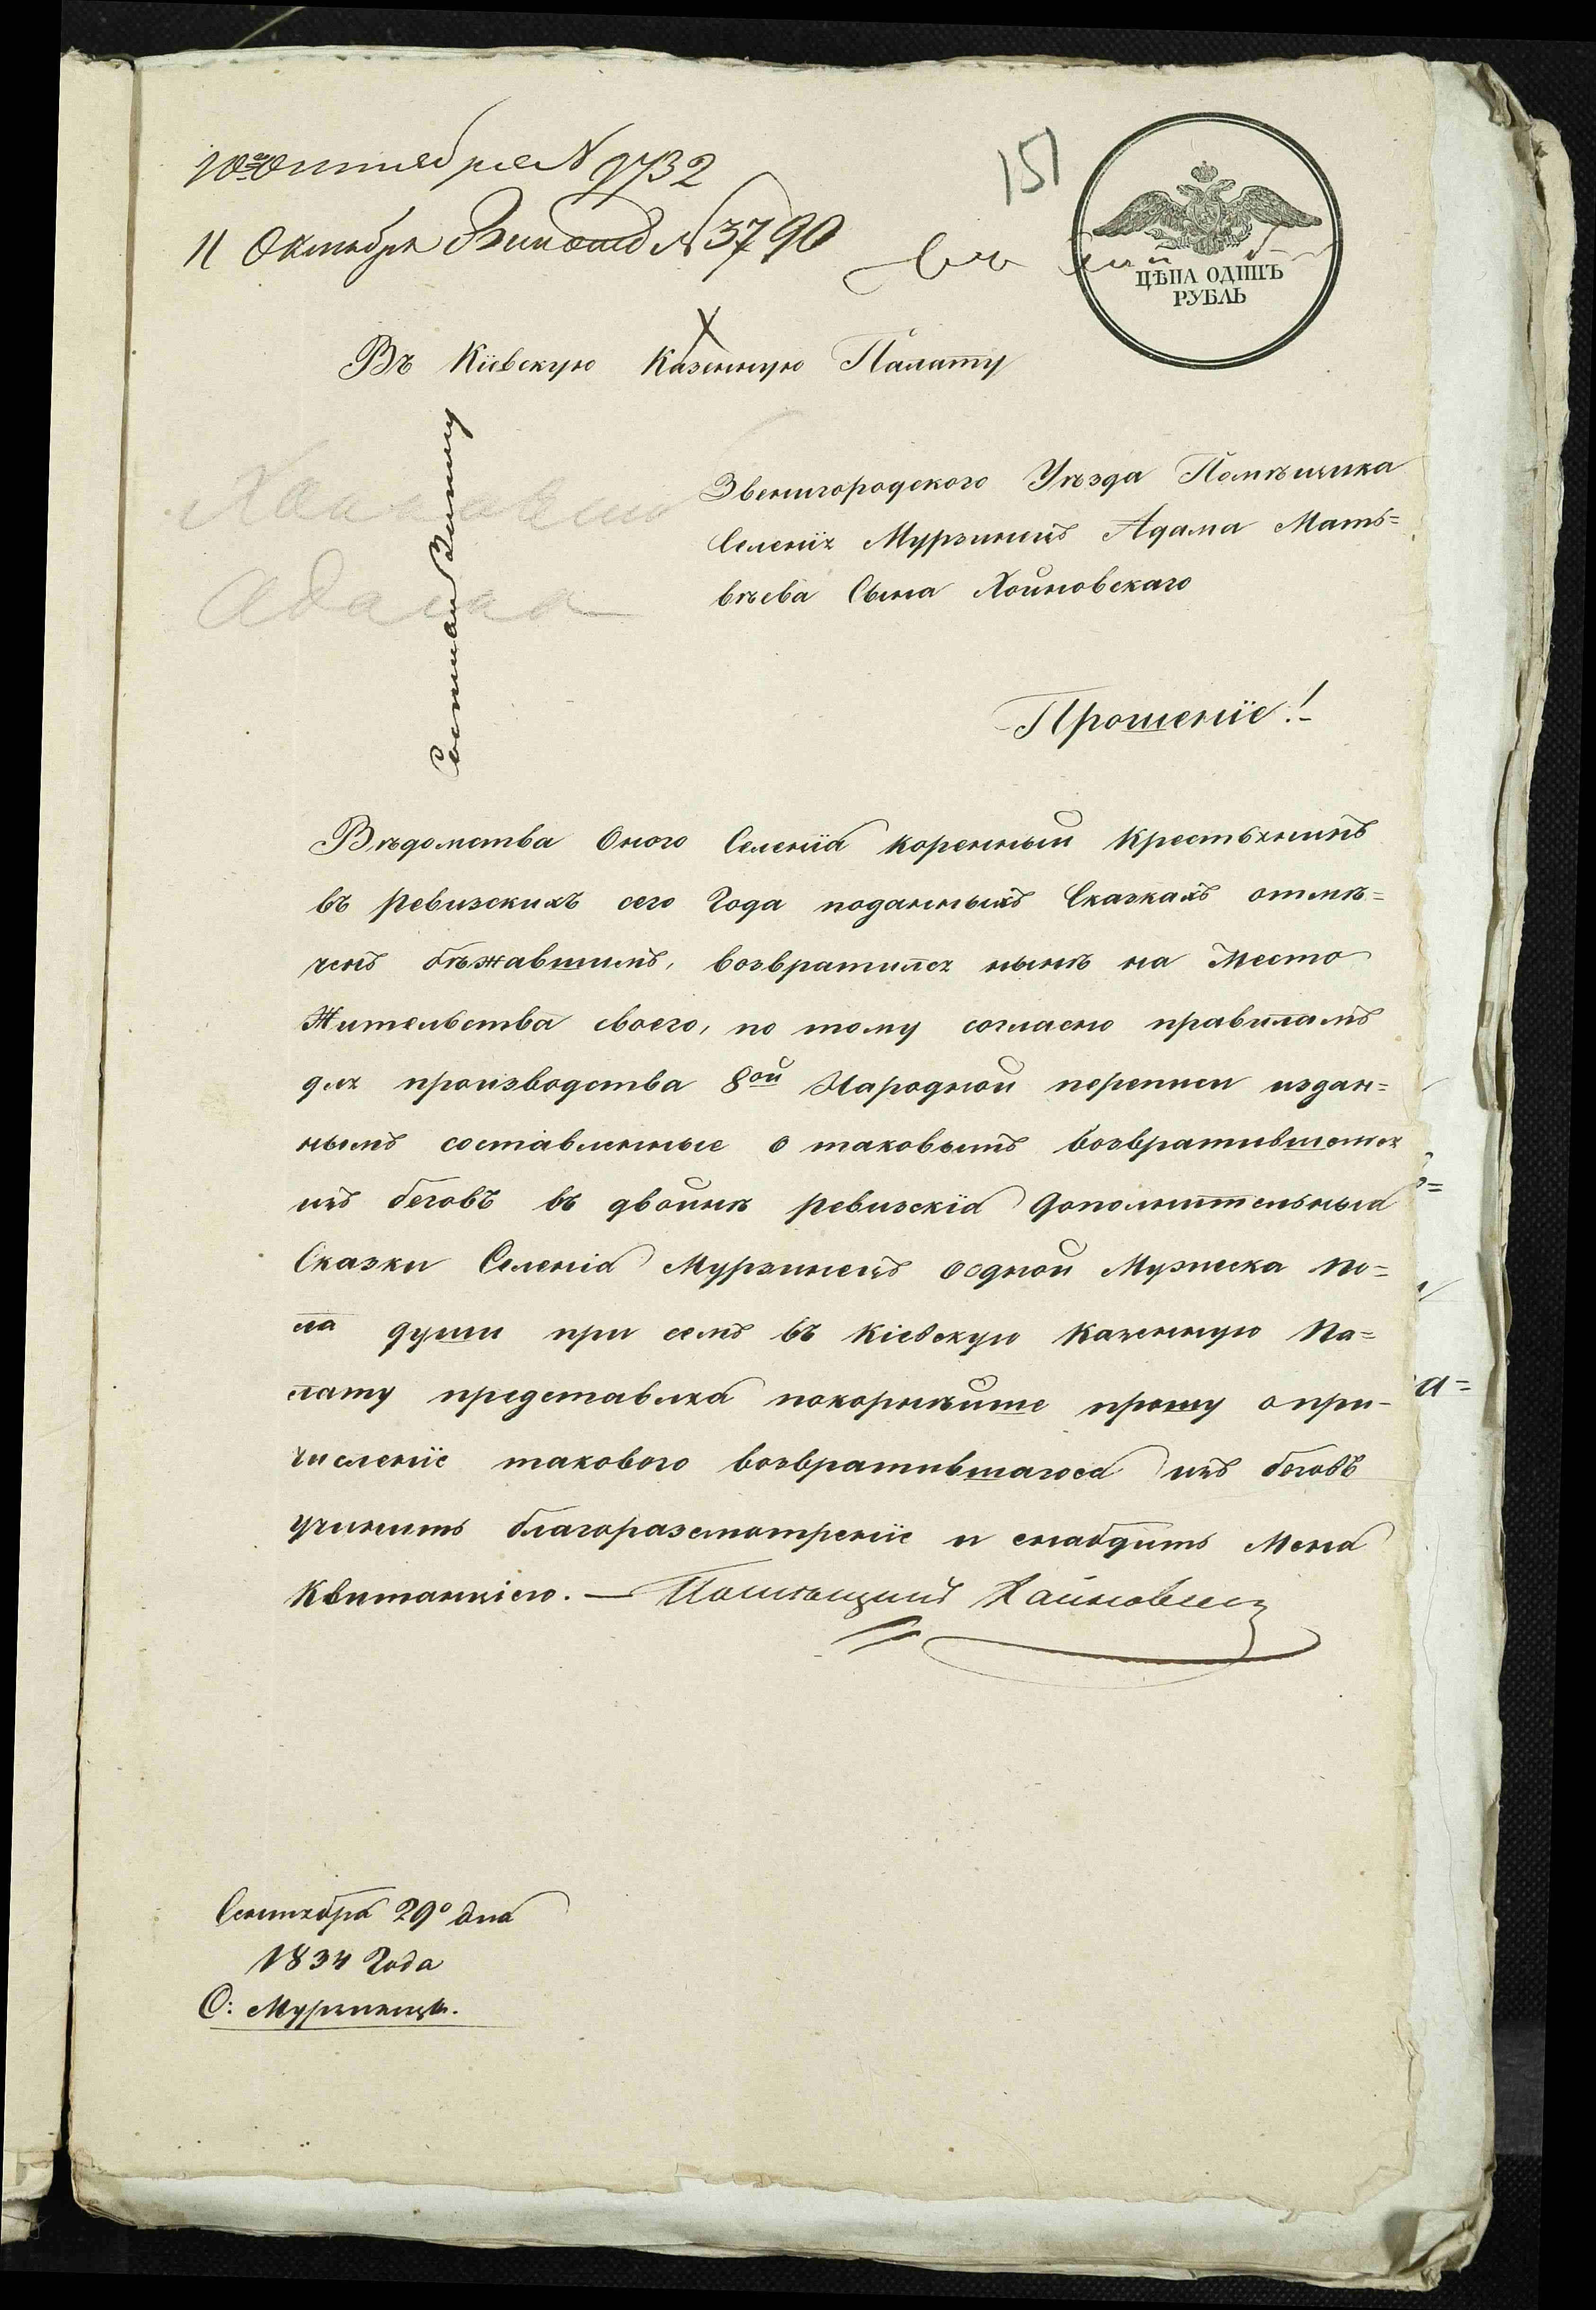 10го Октября № 9732
11 Октября № 3790
151
ЦѢНА ОДИНЪ
РУБЛЬ
Въ Кіевскую Казенную Палату
Звенигородского Уѣзда Помѣщика
Селенія Мурзинецъ Адама Мать=
вѣева Сына Хойновскаго
Хойновски
Адама
Прошеніе!
Вѣдомства Оного Селенія коренный Крестьянинъ
въ ревизскихъ сего Года поданныхъ Сказкахъ отмѣ=
ченъ бѣжавшимъ, возвратился нынѣ на Место
Жительства своего, по тому согласно правиламъ
для производства 8ой Народной переписи издан=
нымъ составленные о таковымъ возвратившемся
изъ беговъ въ двойнѣ ревизскія дополнительныя
Сказки Селенія Мурзинецъ о одной Музческа По=
ла души при семъ въ Кіевскую Казенную Па=
лату представляя покорнѣйше прошу о при-
численіе такового возвратившагося изъ беговъ
учинить благоразсмотреніе и снабдить Меня
Квитанціею. — Помѣщикъ Хайновски
Сентября 29о дня
1834 Года
С: Мурзинецъ.